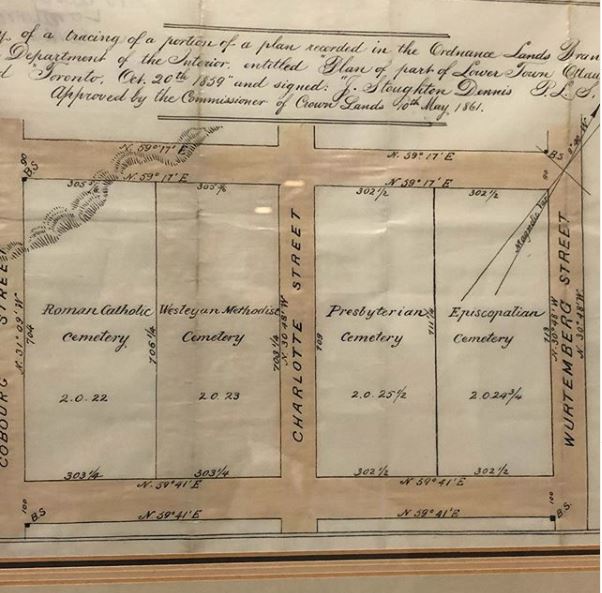 y of a tracing of a portion of a plan recorded in the Ordnance Lands Bran
Department of the Interior, entitled "Plan of part of Lower Town Ottaw
d Toronto, Oct. 20th 1859" and signed: J. Stoughton Dennis P.L.S.
Approved by the Commissioner of Crown Lands 10th May 1861.
N. 59° 17' E
N. 59° 17' E
90
B.S
B.S
N. 59° 17' E
N. 59° 17' E
305
302½
302½
Magnetic
COBOURG STREET
N. 31° 09' W
764
Roman Catholic
Cemetery
2.0.22
706¼
Wesleyan Methodist
Cemetery
2.0.23
703¼
N. 30° 48' W
CHARLOTTE STREET
709
Presbyterian
Cemetery
2.0.25½
711¼
Episcopalian
Cemetery
2.0.24¾
713
N. 30° 48' W
WURTEMBERG STREET
N. 30° 48' W
303¼
303¼
302½
302½
N. 59° 41' E
N. 59° 41' E
100
B.S
N. 59° 41' E
N. 59° 41' E
100
B.S